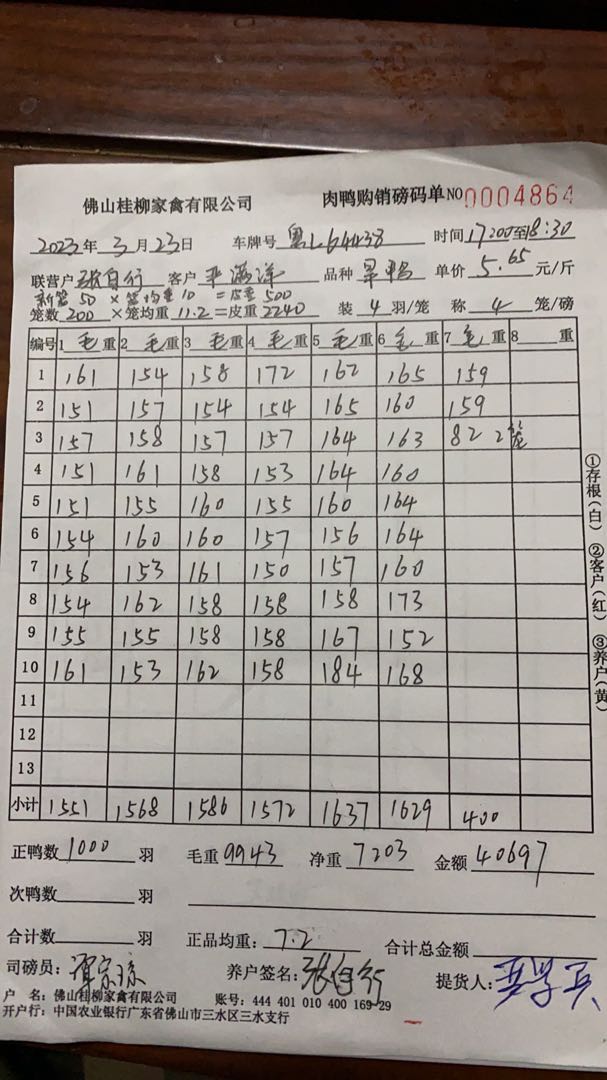 佛山桂柳家禽有限公司 肉鸭购销磅码单 NO 0004864
2023年3月23日 车牌号 粤L64438 时间17:00至18:30
联营户 张自行 客户 品种 单价 5.65 元/斤
新笼 50 × 笼均重 10 =皮重 500
笼数 200 ×笼均重 11.2 =皮重 2240 装 4 羽/笼 称 4 笼/磅
编号 1 毛 重 2 毛 重 3 毛 重 4 毛 重 5 毛 重 6 毛 重 7 毛 重 8 重
1 161 154 158 172 162 165 159
2 151 157 154 154 165 160 159
3 157 158 157 157 164 163 82 2笼
4 151 161 158 153 164 160
5 151 155 160 155 160 164
6 154 160 160 157 156 164
7 156 153 161 150 157 160
8 154 162 158 158 158 173
9 155 155 158 158 167 152
10 161 153 162 158 184 168
11
12
13
小计 1551 1568 1586 1572 1637 1629 400
正鸭数 1000 羽 毛重 9943 净重 7203 金额 40697
次鸭数 羽
合计数 羽 正品均重: 7.2 合计总金额
司磅员: 养户签名: 张自行 提货人:
户 名: 佛山桂柳家禽有限公司 账号: 444 401 010 400 169 29
开户行: 中国农业银行广东省佛山市三水区三水支行
①存根(白) ②客户(红) ③养户(黄)